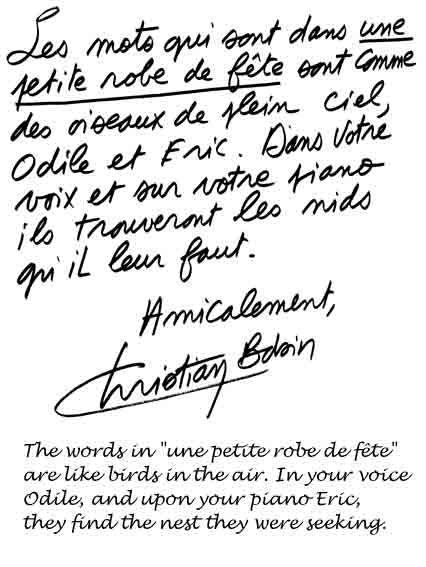 Les mots qui sont dans une
petite robe de fête sont comme
des oiseaux de plein ciel,
Odile et Eric. Dans votre
voix et sur votre piano
ils trouveront les nids
qu'il leur faut.
Amicalement,
Christian Bobin
The words in "une petite robe de fête"
are like birds in the air. In your voice
Odile, and upon your piano Eric,
they find the nest they were seeking.